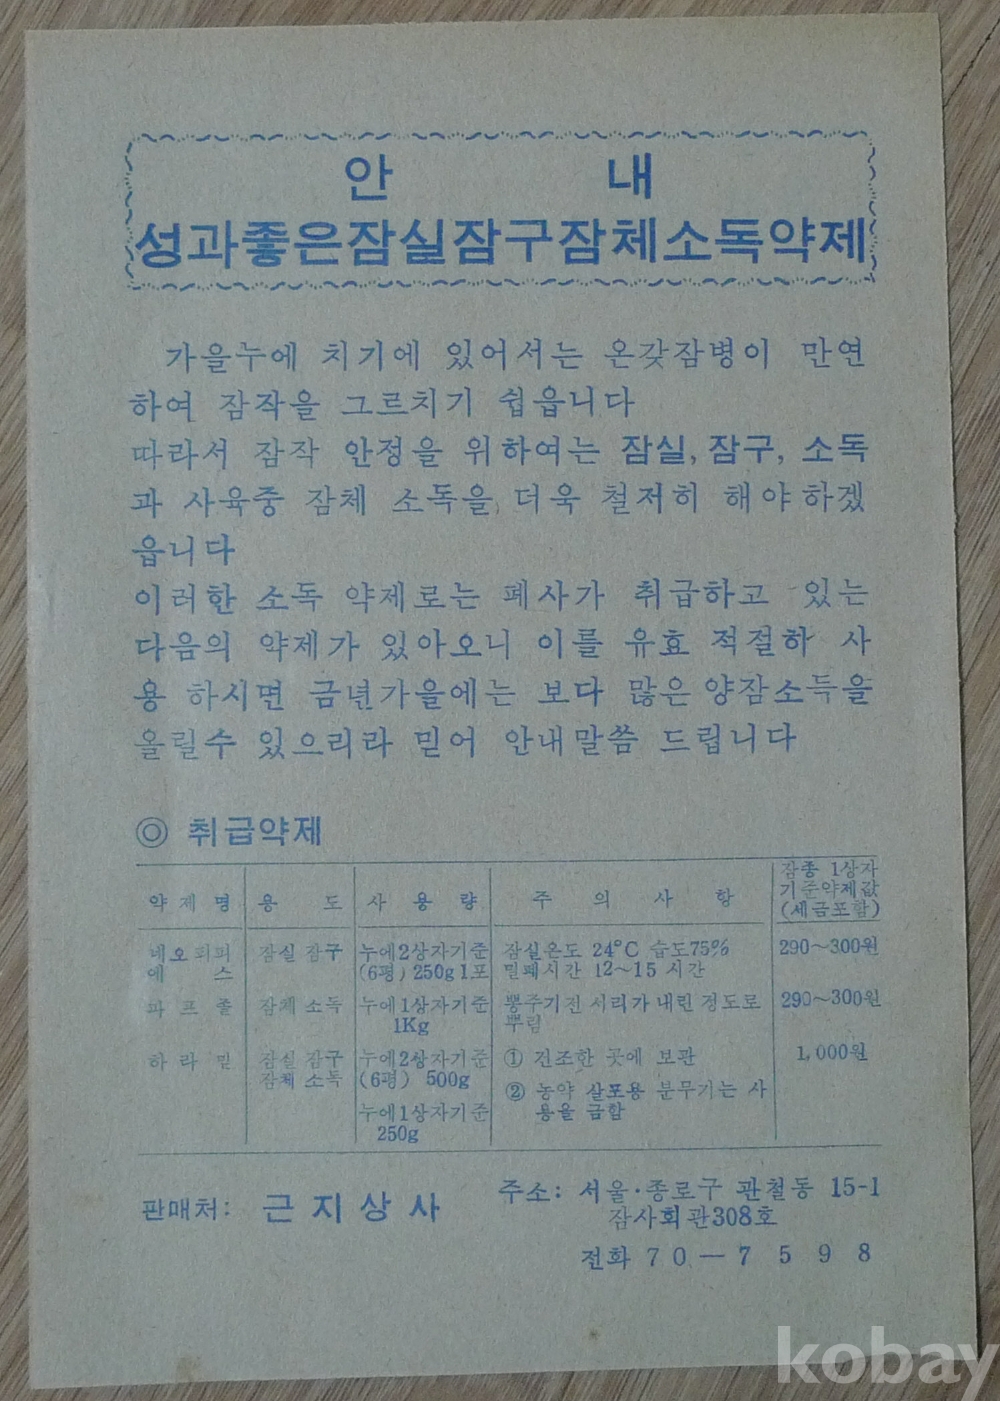 안 내
성과좋은잠실잠구잠체소독약제
가을누에 치기에 있어서는 온갖잠병이 만연
하여 잠작을 그르치기 쉽읍니다
따라서 잠작 안정을 위하여는 잠실, 잠구, 소독
과 사육중 잠체 소독을 더욱 철저히 해야하겠
읍니다
이러한 소독 약제로는 폐사가 취급하고 있는
다음의 약제가 있아오니 이를 유효 적절하 사
용 하시면 금년가을에는 보다 많은 양잠소득을
올릴수 있으리라 믿어 안내말씀 드립니다
◎ 취급약제
약제명 용도 사용량 주의사항 잠종 1상자
기준약제값
(세금포함)
네오피피 잠실 잠구 누에2상자기준 잠실온도 24°C 습도75% 290~300원
에스 (6평) 250g 1포 밀폐시간 12~15 시간
파프졸 잠체 소독 누에1상자기준 뽕주기전 서리가 내린 정도로 290~300원
1Kg 뿌림
하라밑 잠실 잠구 누에2상자기준 ① 건조한 곳에 보관 1,000원
잠체 소독 (6평) 500g
② 농약 살포용 분무기는 사
누에1상자기준 용을 금함
250g
판매처: 근지상사 주소: 서울·종로구 관철동 15-1
잠사회관308호
전화 70-7598
kobay